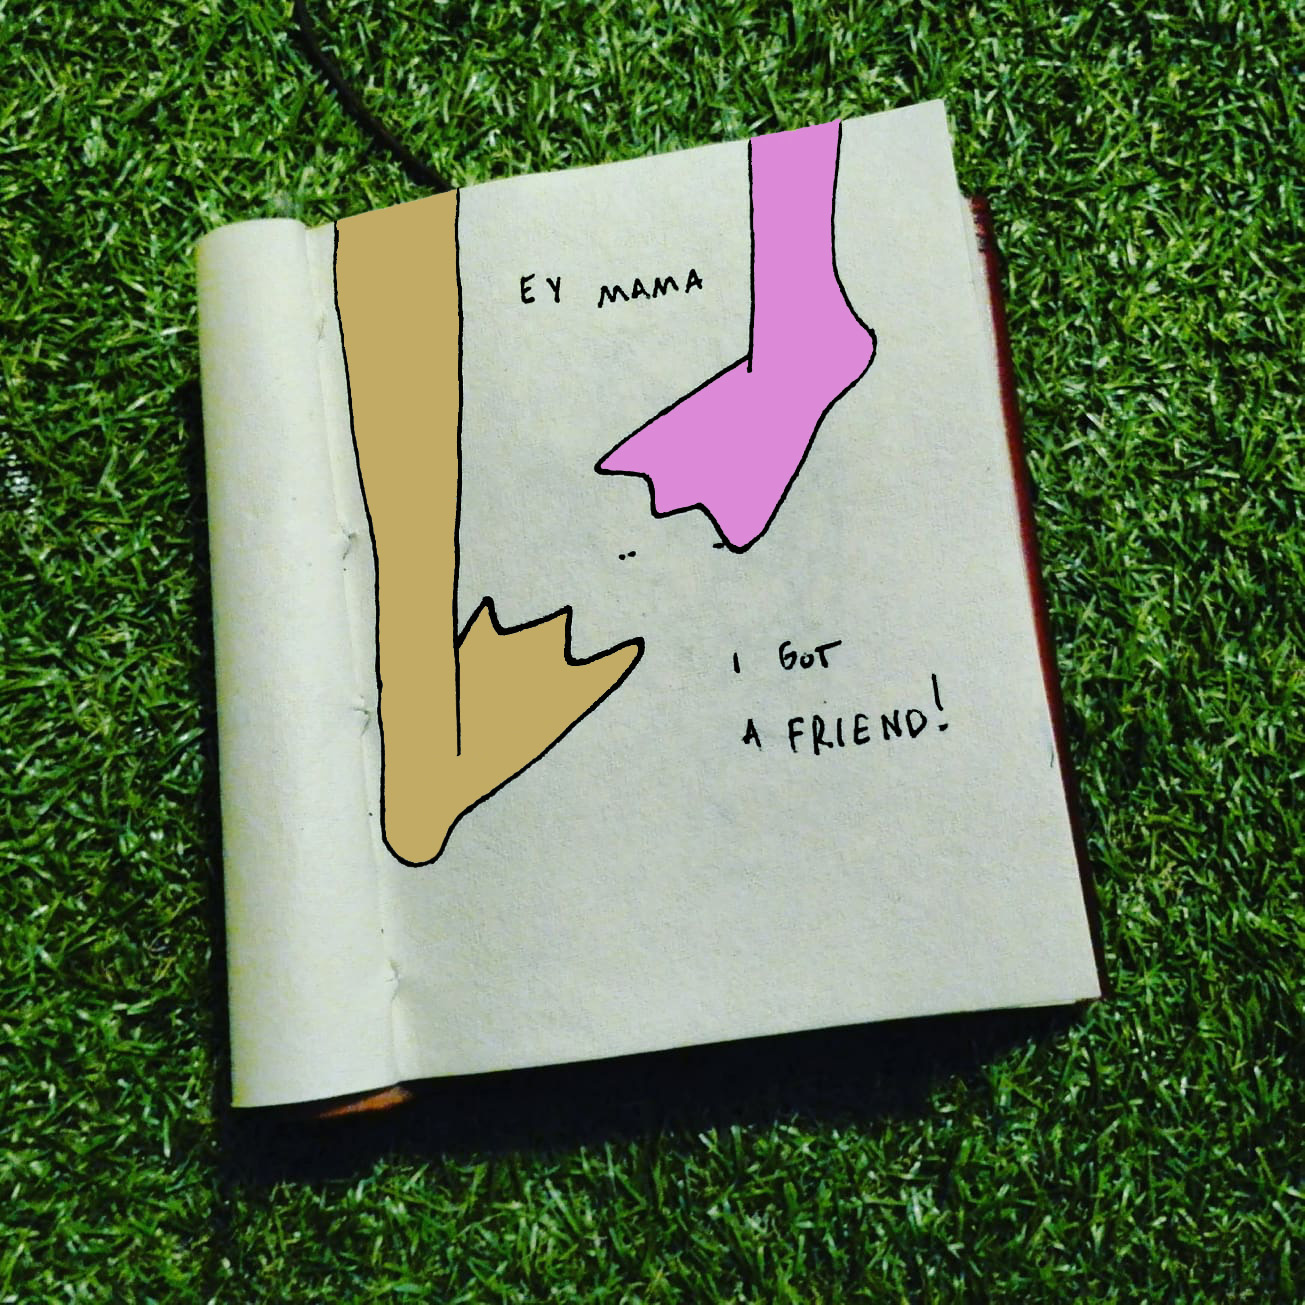 EY MAMA
I GOT
A FRIEND!